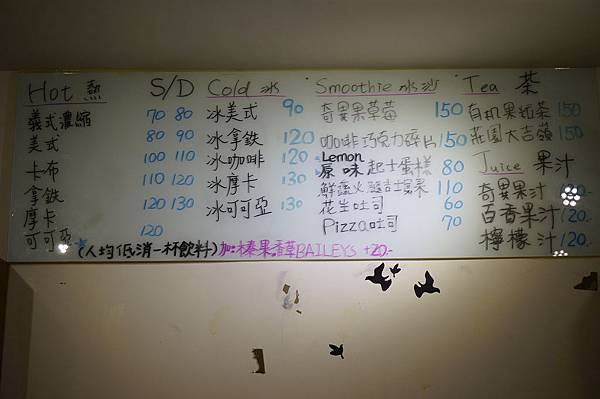 Hot 熱 S/D
義式濃縮 70 80
美式 80 90
卡布 100 110
拿鐵 110 120
摩卡 120 130
可可亞 120
Cold 冰
冰美式 90
冰拿鐵 120
冰咖啡 120
冰摩卡 130
冰可可亞 130
Smoothie 冰沙
奇異果草莓 150
咖啡巧克力碎片 150
Lemon
原味起士蛋糕 80
鮮蔬火腿吉士堡 110
花生吐司 60
Pizza吐司 70
Tea 茶
有机果粒茶 150
莊園大吉嶺 150
Juice 果汁
奇異果汁
百香果汁 120.-
檸檬汁 120.-
(人均低消一杯飲料)加:榛果.香草BAILEYS +20.-